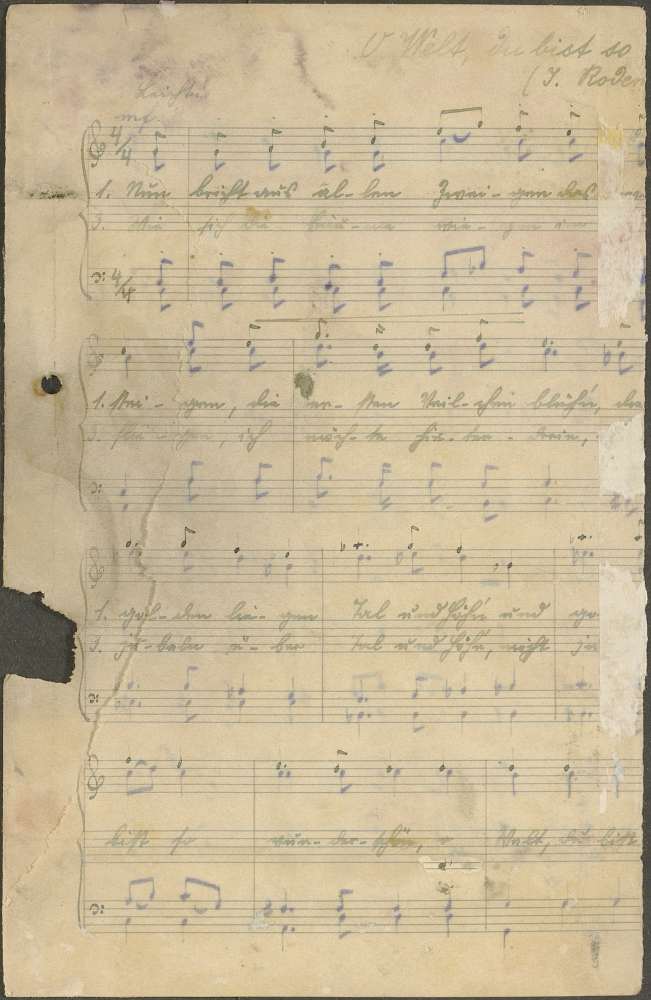 O Welt, du bist so
(J. Roden
Leicht.
mf.
4/4
1. Nun bricht aus al-len Zwei-gen das
3. Wie sich die Bäu-me wie-gen im
4/4
1. stei-gen, die er-sten Veil-chen blühn,
3. flie-gen, ich möch-te hin-ter-drein,
1. gol-den lie-gen Tal und Höh'n und go
3. ju-beln ü-ber Tal und Höh'n, möcht ju
bist so wun-der-schön, o Welt, du bist